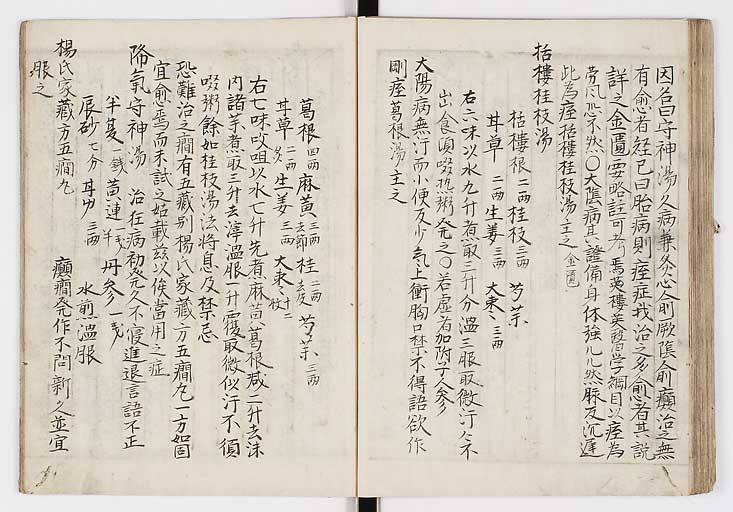 因名曰守神湯久病兼灸心兪厥陰兪癲治之無
有愈者経已曰胎病則痓症我治之多愈者其説
詳之金匱要略註可考焉英樓英醫学綱目以痓為
労風恐不然○太陰病其證備身体強几几然脉反沉遅
此為痓栝樓桂枝湯主之 金匱
栝樓桂枝湯
栝樓根 二両 桂枝 三両 芍薬
甘草 二両 生姜 三両 大棗 三両
右六味以水九升煮取三升分温三服取微汗人不
出食頃啜熱粥発之○若虚者加附子人参
太陽病無汗而小便反少気上衝胸口禁不得語欲作
剛痓葛根湯主之
葛根 四両 麻黄 三両 去節 桂 二両 去皮 芍薬 二両
甘草 二両 炙 生姜 三両 大棗 十二枚
右七味㕮咀以水七升先煮麻黄葛根減二升去沫
内諸薬煮取三升去滓温服一升覆取微似汗不須
啜粥餘如桂枝湯法将息及禁忌
恐難治之癇有五蔵別楊氏家蔵方五癇丸一方如固
宜愈焉而未試之姑載玆以俟當用之症
降氣守神湯 治在病初発久不寝進退言語不正
半夏 一銭 黄連 一戔半 丹参 一戔
辰砂 七分 甘艸 三両 水煎温服
楊氏家蔵方五癇丸 癲癇発作不問新久並宜
服之